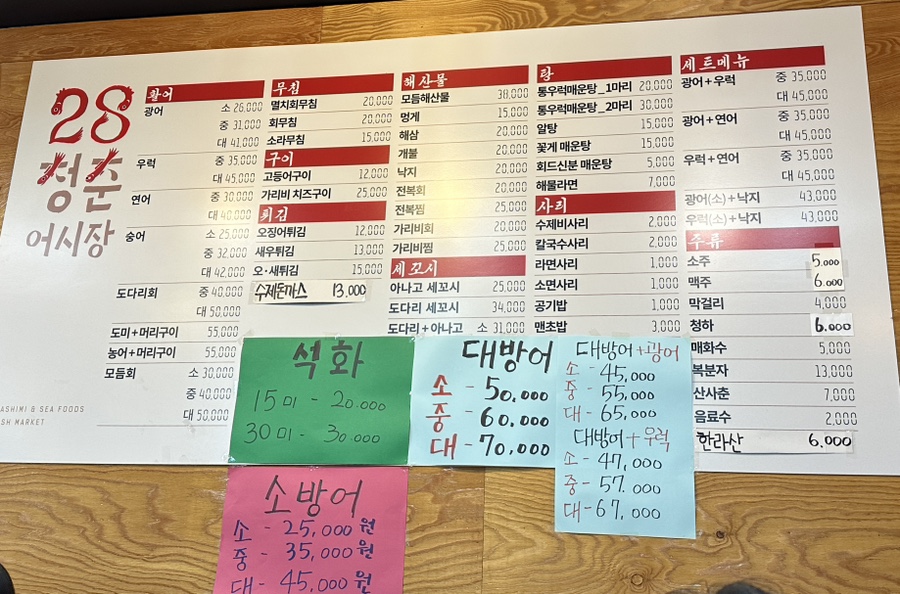 28
청춘
어시장
ASHIMI & SEA FOODS
SH MARKET
활어
광어 소 26,000
중 31,000
대 41,000
우럭 중 35,000
대 45,000
연어 중 30,000
대 40,000
숭어 소 25,000
중 32,000
대 42,000
도다리회 중 40,000
대 50,000
도미+머리구이 55,000
농어+머리구이 55,000
모듬회 소 30,000
중 40,000
대 50,000
무침
멸치회무침 20,000
회무침 20,000
소라무침 15,000
구이
고등어구이 12,000
가리비 치즈구이 25,000
튀김
오징어튀김 12,000
새우튀김 13,000
오·새튀김 15,000
수제돈까스 13.000
해산물
모듬해산물 38,000
멍게 15,000
해삼 20,000
개불 20,000
낙지 20,000
전복회 20,000
전복찜 25,000
가리비회 20,000
가리비찜 25,000
세꼬시
아나고 세꼬시 25,000
도다리 세꼬시 34,000
도다리+아나고 소 31,000
탕
통우럭매운탕_1마리 20,000
통우럭매운탕_2마리 30,000
알탕 15,000
꽃게 매운탕 15,000
회드신분 매운탕 5,000
해물라면 7,000
사리
수제비사리 2,000
칼국수사리 2,000
라면사리 1,000
소면사리 1,000
공기밥 1,000
맨초밥 3,000
세트메뉴
광어+우럭 중 35,000
대 45,000
광어+연어 중 35,000
대 45,000
우럭+연어 중 35,000
대 45,000
광어(소)+낙지 43,000
우럭(소)+낙지 43,000
주류
소주 5.000
맥주 6.000
막걸리 4,000
청하 6.000
매화수 5,000
복분자 13,000
산사춘 7,000
음료수 2,000
한라산 6.000
석화
15미 - 20.000
30미 - 30.000
대방어
소 - 50,000
중 - 60,000
대 - 70,000
대방어+광어
소 - 45,000
중 - 55,000
대 - 65,000
대방어+우럭
소 - 47,000
중 - 57.000
대 - 67,000
소방어
소 - 25,000원
중 - 35,000원
대 - 45,000원